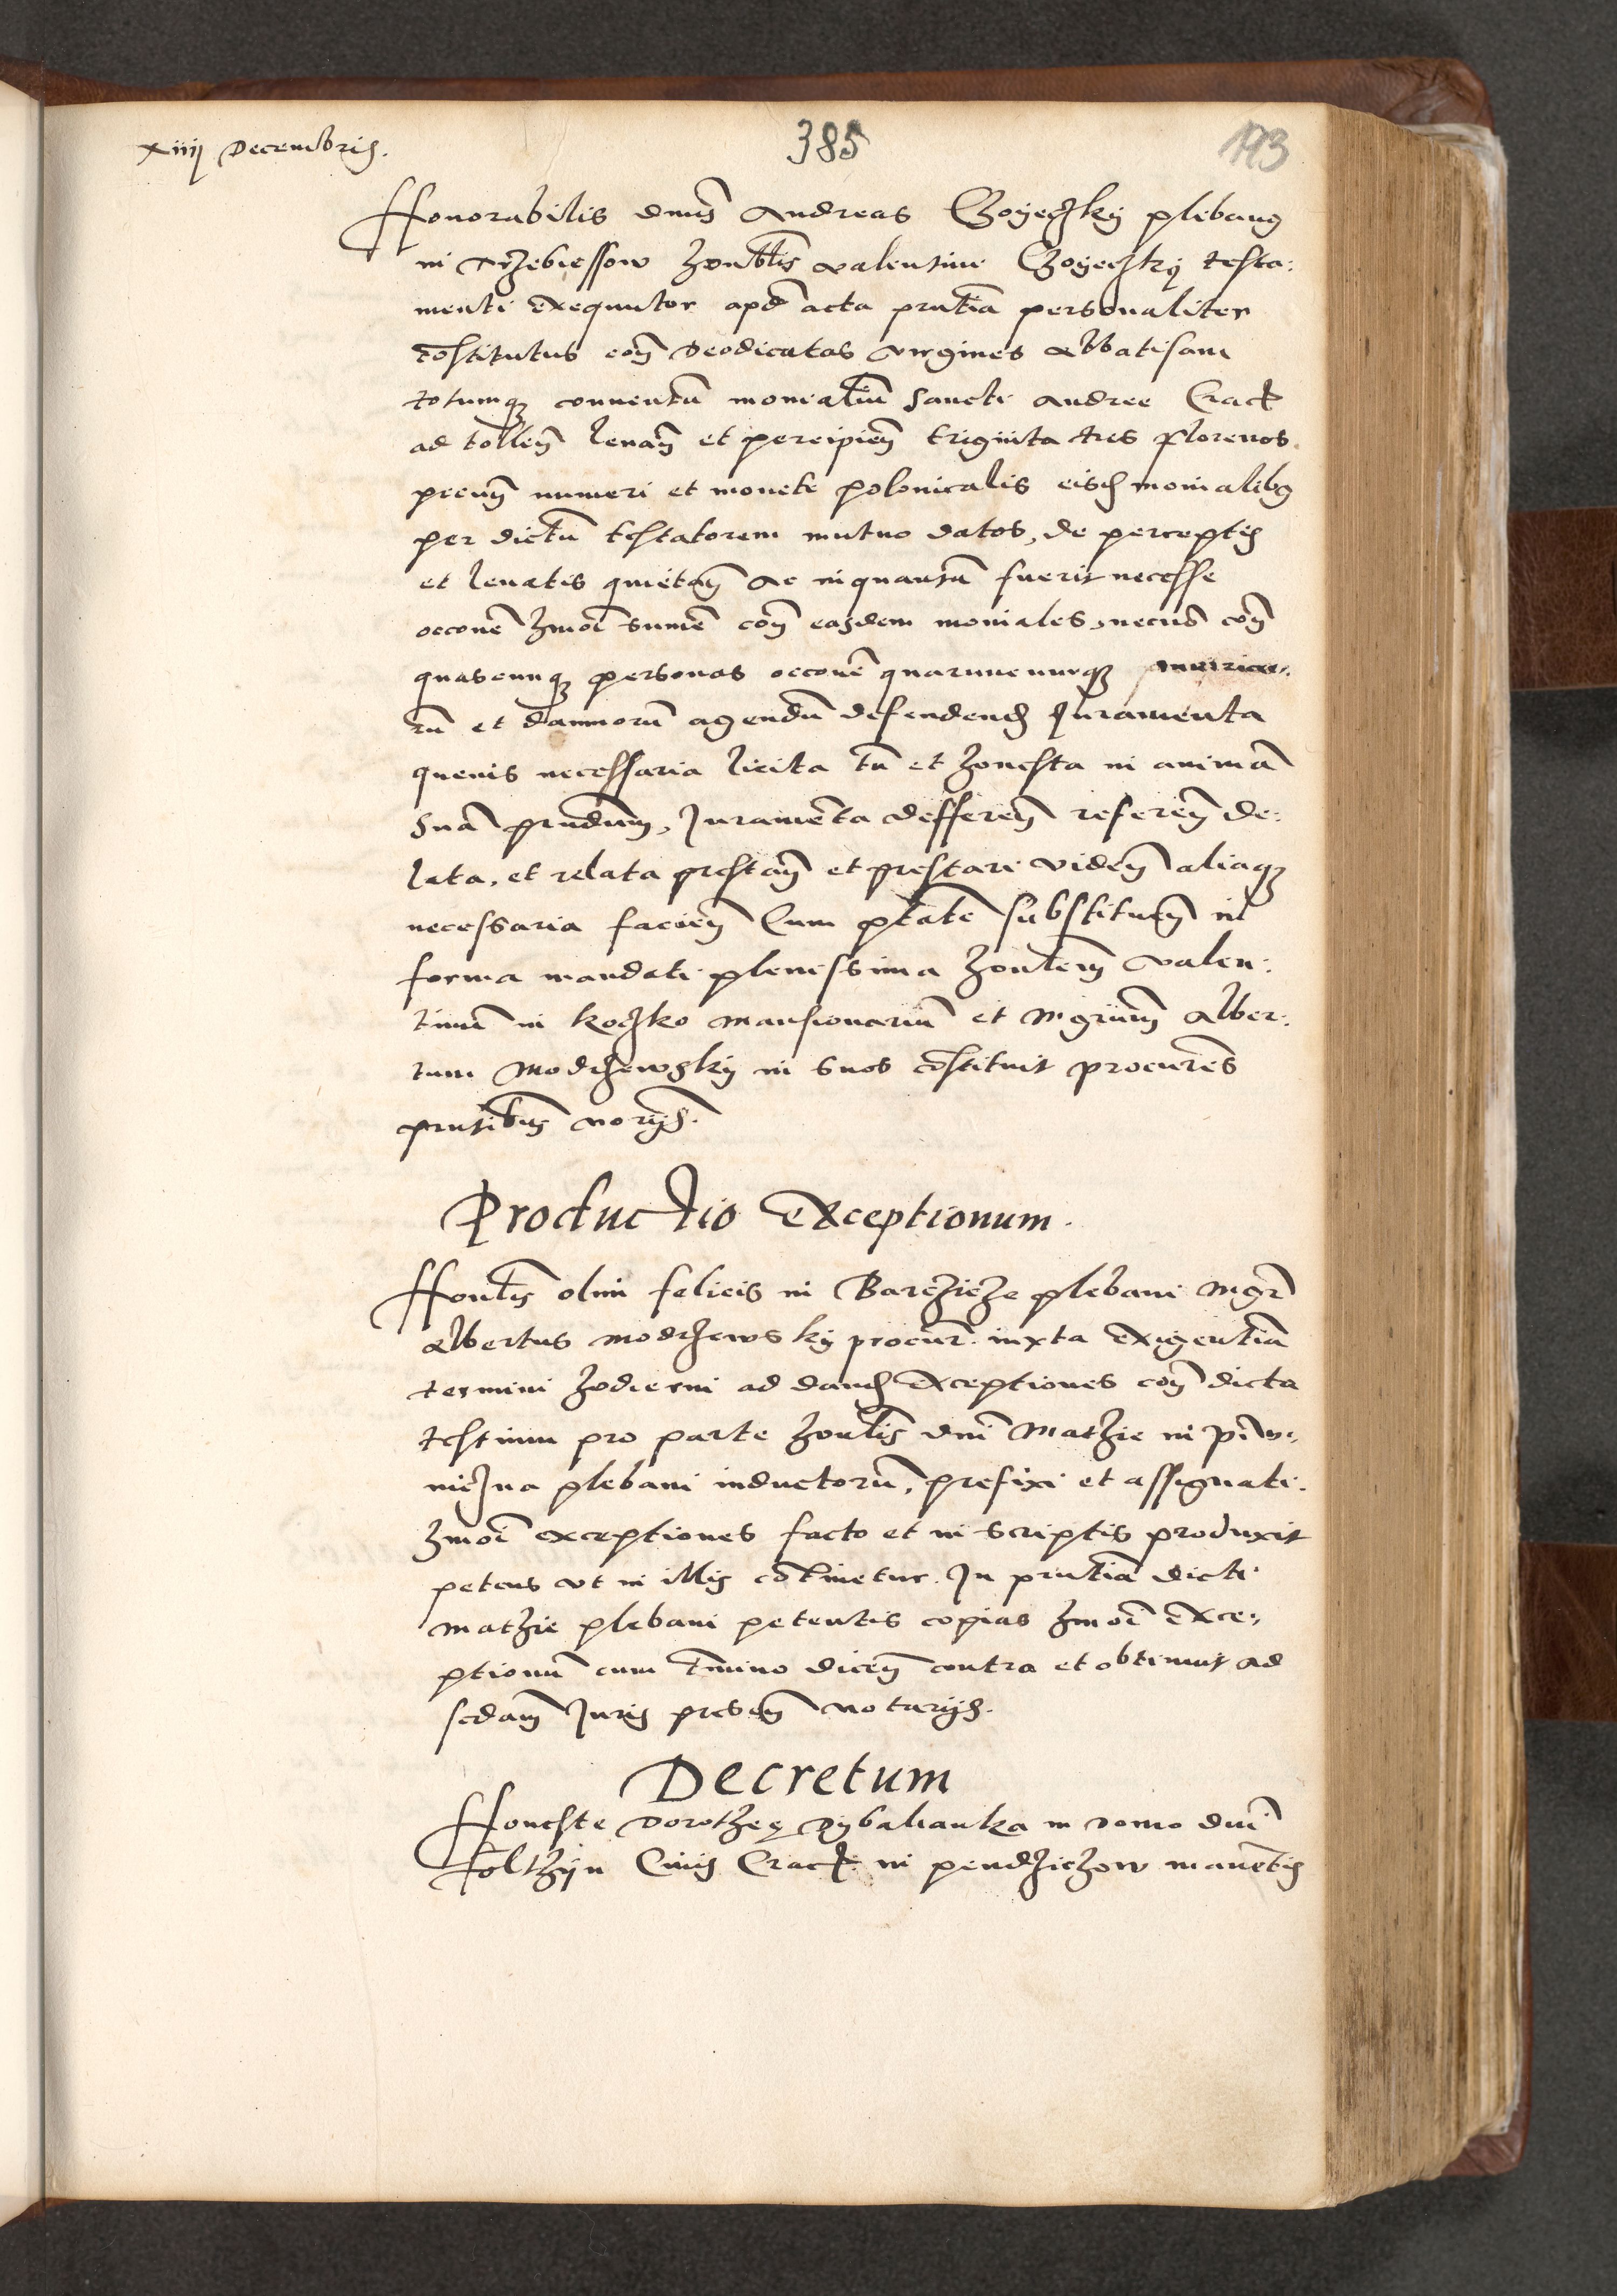 385
193
xiiij Decembris.
Honorabilis dnus Andreas Gogeczky plebanus
in Drzebiessow honblis Valentini Gogeczky testa:
menti exequutor apd acta pntia personaliter
constitutus con Deodicatas virgines Abbatisam
totumq conventu monialiu Sancti Andree Crac
ad tollen levan et percipien triginta tres florenos
pecun numeri et monete polonicalis eisd monialibus
per dictu testatorem mutuo datos, de perceptis
et levatis quietan Ac inquantu fuerit necesse
occone hmoi summe con easdem moniales, necno con
quascunq personas occone quarumcunq iniuria:
ru et damnorum agendu defendend Juramenta
quevis necessaria licita tn et honesta in anima
sua prndum, Juramenta defferen referen de:
lata, et relata prestan et prestari viden aliaq
necessaria facien Cum ptate substituen in
forma mandati plenissima honlem Valen:
tinu in koczko mansionariu et Mgrum Alber:
tum Modrzewsky in suos constituit procures
pntibus noryis.
Productio Exceptionum.
Honlis olim felicis in Barczicze plebani Mgr
Albertus Modrzewsky procur. iuxta exigentia
termini hodierni ad dand exceptiones con dicta
testium pro parte honlis dni Mathie in piw:
niczna plebani inductoru, prefixi et assignati.
hmoi exceptiones facto et in scriptis produxit
petens ut in illis continetur. In pntia dicti
Mathie plebani petentis copias hmoi exce:
ptionu cum termino dicen contra et obtinuit ad
sedam Juris presen notaryis.
Decretum
Honeste Dorothee Rybalianka in domo dni
foltzyn Civis Crac in pendzichow manentis